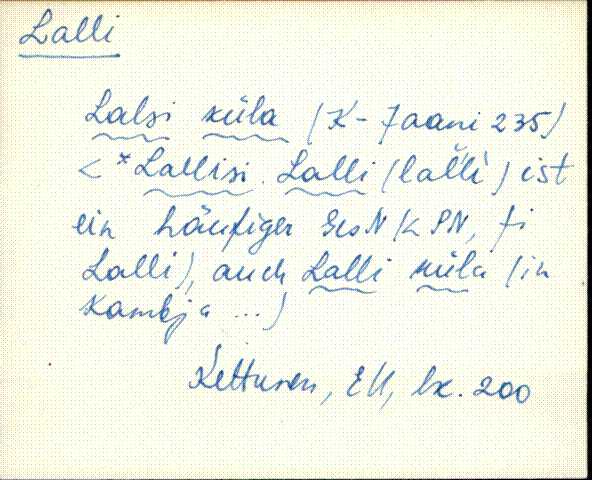 Lalli
Lalsi küla (K-Jaani 235)
< *Lallisi. Lalli (lalli) ist
ein häufiger GesN (< PN, fi
Lalli), auch Lalli küla (in
Kambja ...)
Kettunen, EU, lk. 200